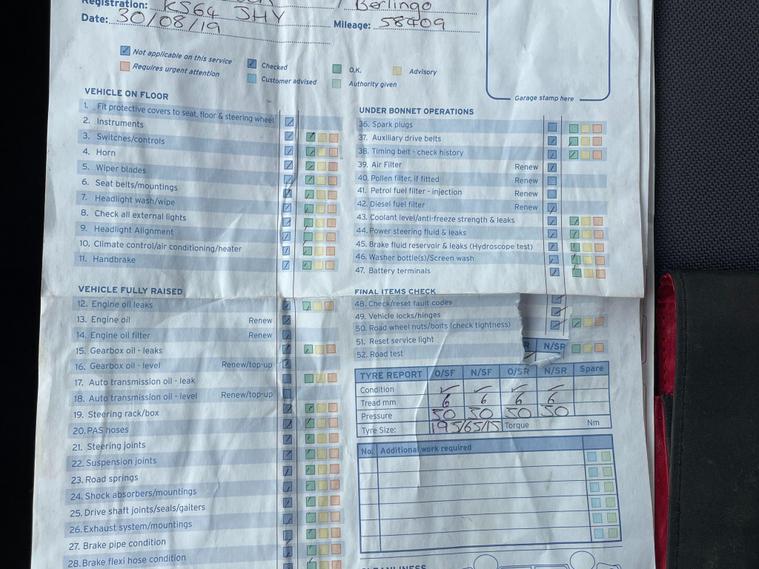 Registration: KS64 JHY
Berlingo
Date: 30/08/19
Mileage: 58409
Not applicable on this service
Checked
O.K.
Advisory
Requires urgent attention
Customer advised
Authority given
Garage stamp here
VEHICLE ON FLOOR
1. Fit protective covers to seat, floor & steering wheel
2. Instruments
3. Switches/controls
4. Horn
5. Wiper blades
6. Seat belts/mountings
7. Headlight wash/wipe
8. Check all external lights
9. Headlight Alignment
10. Climate control/air conditioning/heater
11. Handbrake
VEHICLE FULLY RAISED
12. Engine oil leaks
13. Engine oil Renew
14. Engine oil filter Renew
15. Gearbox oil - leaks
16. Gearbox oil - level Renew/top-up
17. Auto transmission oil - leak
18. Auto transmission oil - level Renew/top-up
19. Steering rack/box
20. PAS hoses
21. Steering joints
22. Suspension joints
23. Road springs
24. Shock absorbers/mountings
25. Drive shaft joints/seals/gaiters
26. Exhaust system/mountings
27. Brake pipe condition
28. Brake flexi hose condition
UNDER BONNET OPERATIONS
36. Spark plugs
37. Auxiliary drive belts
38. Timing belt - check history
39. Air Filter Renew
40. Pollen filter, if fitted Renew
41. Petrol fuel filter - injection Renew
42. Diesel fuel filter Renew
43. Coolant level/anti-freeze strength & leaks
44. Power steering fluid & leaks
45. Brake fluid reservoir & leaks (Hydroscope test)
46. Washer bottle(s)/Screen wash
47. Battery terminals
FINAL ITEMS CHECK
48. Check/reset fault codes
49. Vehicle locks/hinges
50. Road wheel nuts/bolts (check tightness)
51. Reset service light
52. Road test
R N/SR
TYRE REPORT O/SF N/SF O/SR N/SR Spare
Condition ✓ ✓ ✓ ✓
Tread mm 6 6 6 6
Pressure 50 50 50 50
Tyre Size: 195/65/15 Torque Nm
No. Additional work required